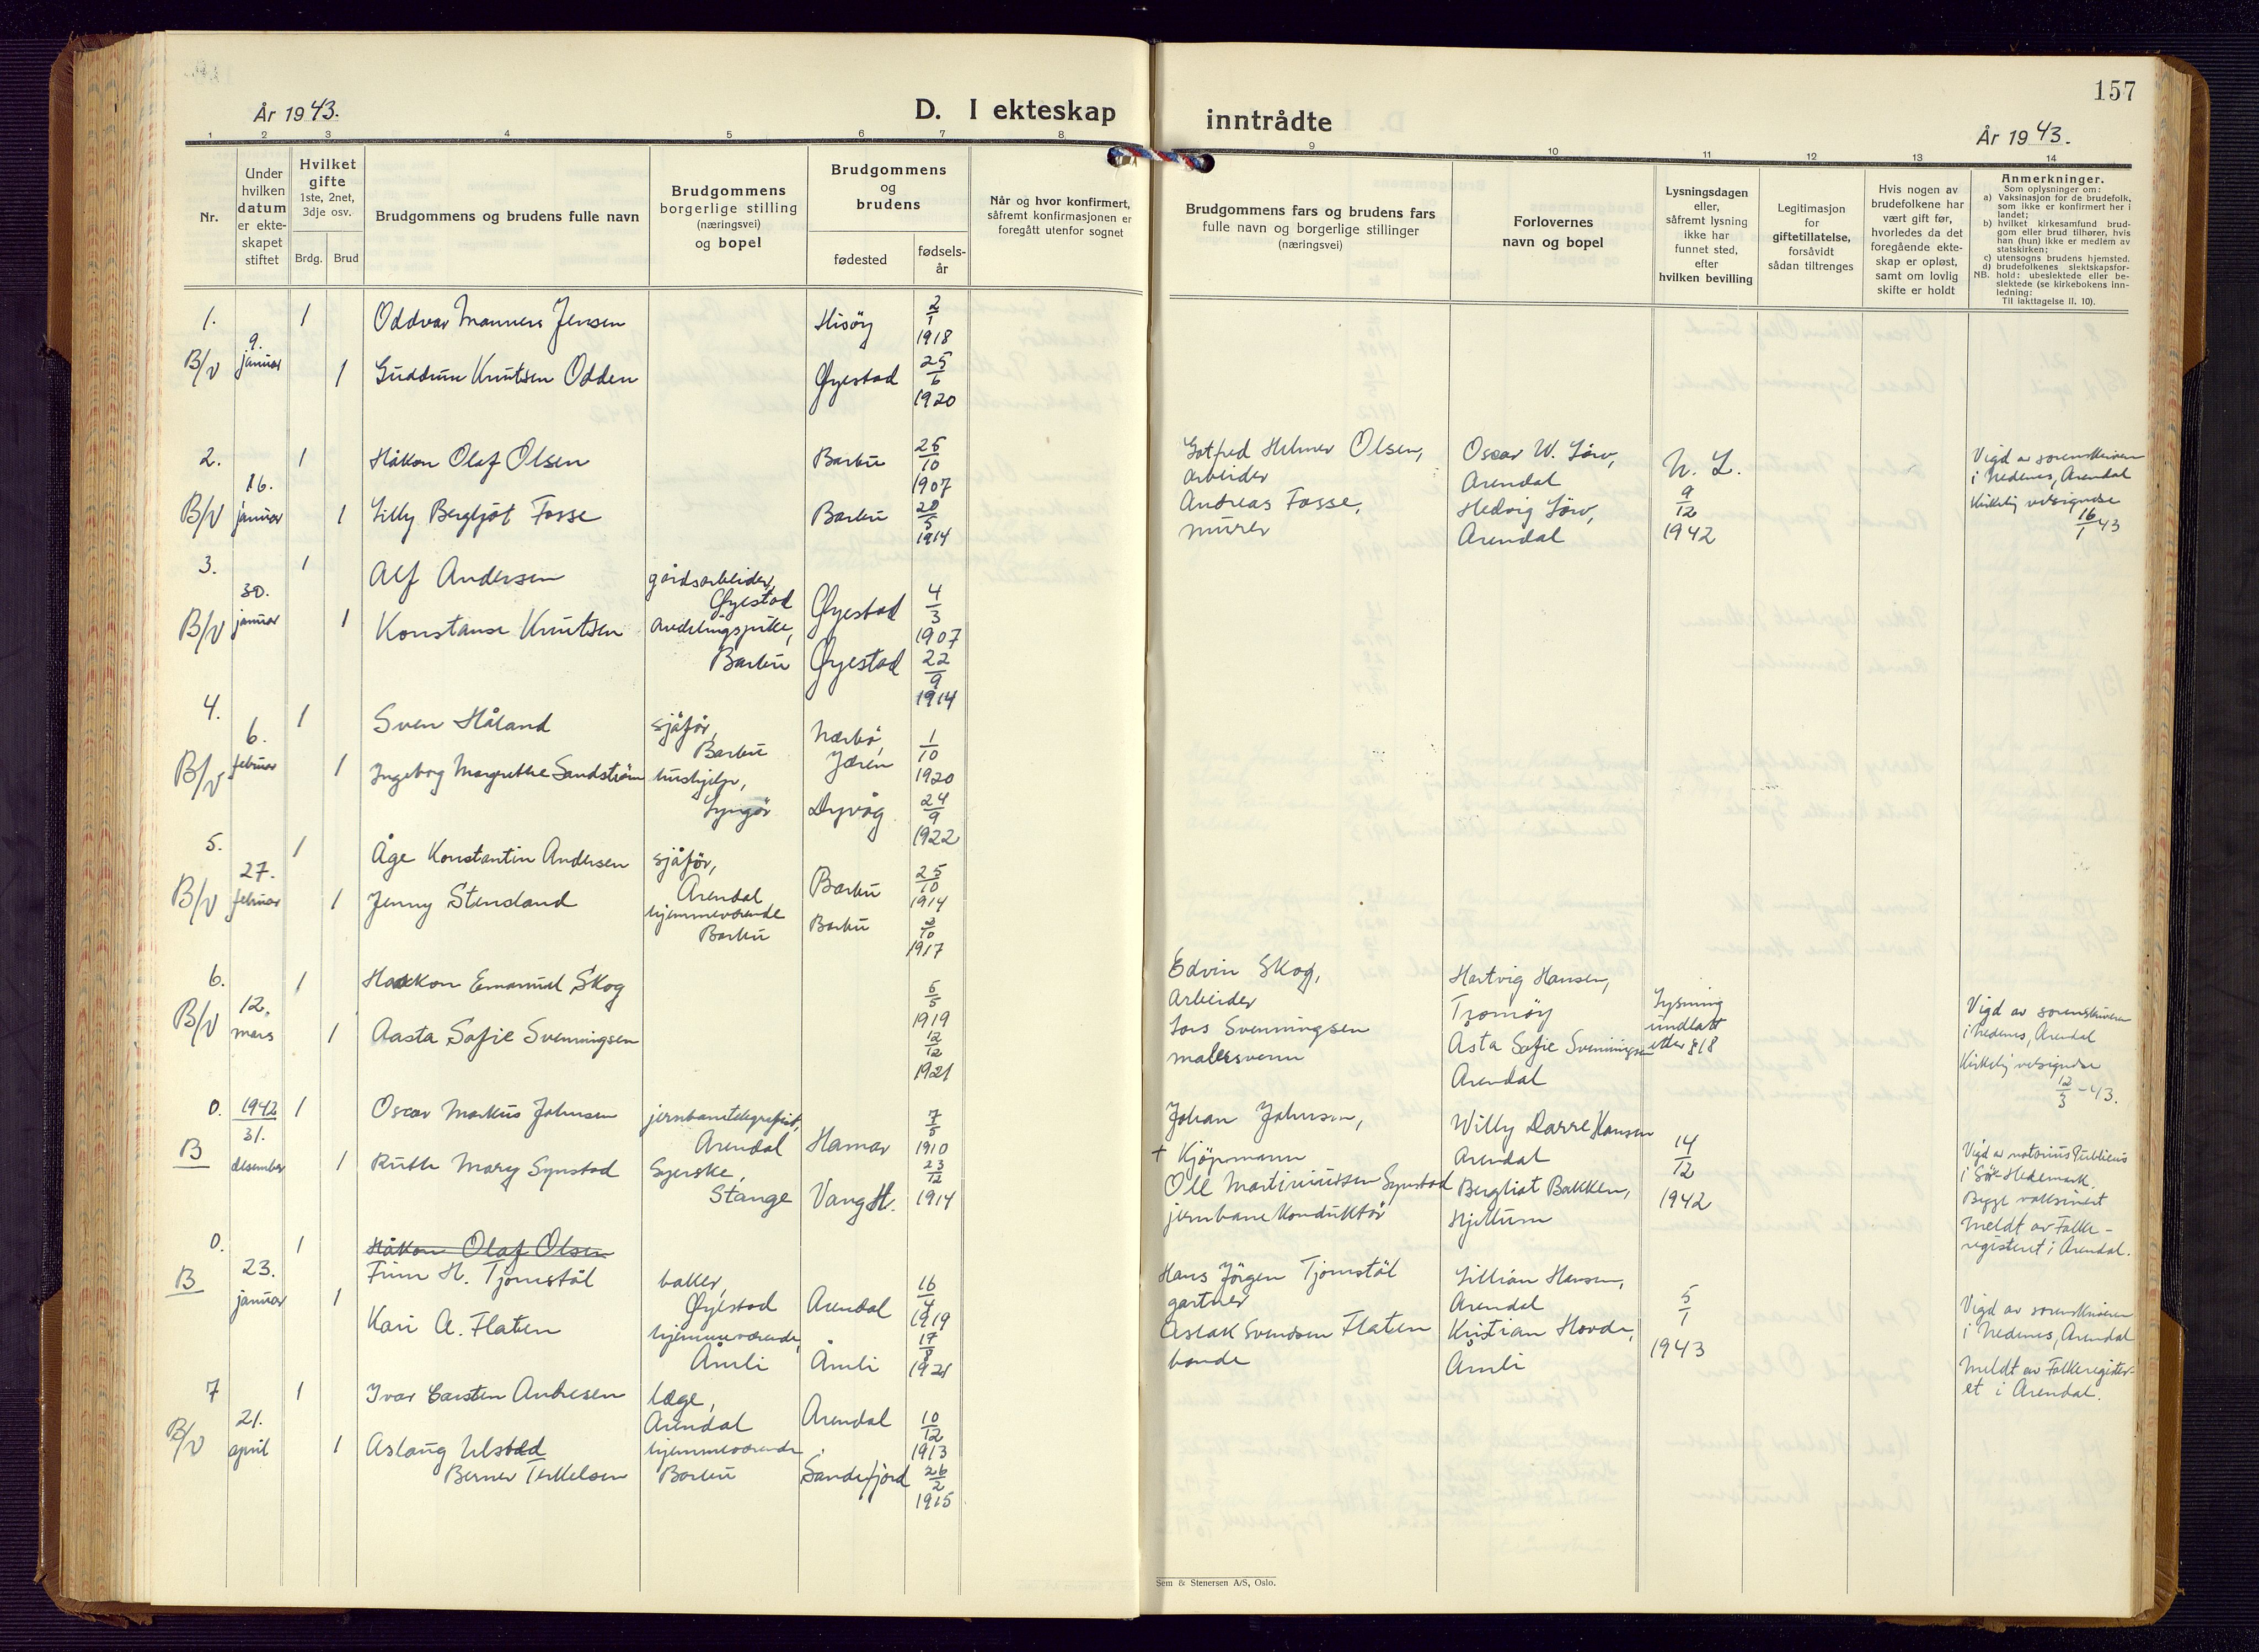 157
År 1943.
D. I ekteskap
inntrådte
År 1943.
1 2 3 4 5 6 7 8
9 10 11 12 13 14
Nr.
Under
hvilken
datum
er ekte-
skapet
stiftet
Hvilket
gifte
1ste, 2net,
3dje osv.
Brdg.
Brud
Brudgommens og brudens fulle navn
Brudgommens
borgerlige stilling
(næringsvei)
og bopel
Brudgommens
og
brudens
fødested
fødsels-
år
Når og hvor konfirmert,
såfremt konfirmasjonen er
foregått utenfor sognet
Brudgommens fars og brudens fars
fulle navn og borgerlige stillinger
(næringsvei)
Forlovernes
navn og bopel
Lysningsdagen
eller,
såfremt lysning
ikke har
funnet sted,
efter
hvilken bevilling
Legitimasjon
for
giftetillatelse,
forsåvidt
sådan tiltrenges
Hvis nogen av
brudefolkene har
vært gift før,
hvorledes da det
foregående ekte-
skap er opløst,
samt om lovlig
skifte er holdt
Anmerkninger.
Som oplysninger om:
a) Vaksinasjon for de brudefolk,
som ikke er konfirmert her i
landet;
b) hvilket kirkesamfund brud-
gom eller brud tilhører, hvis
han (hun) ikke er medlem av
statskirken;
c) utensogns brudens hjemsted.
d) brudefolkenes slektskapsfor-
NB. hold: ubeslektede eller be-
slektede (se kirkebokens inn-
ledning:
Til iakttagelse II, 10).
1.
B/V
9.
januar
1
1
Oddvar Manners Jensen
Guddrun Knutsen Odden
Hisöy
2/1
1918
Øyestad
25/6
1920
2.
B/V
16.
januar
1
1
Håkon Olaf Olsen
Lilly Bergljot Fosse
Barbu
25/10
1907
Barbu
20/5
1914
Gotfred Helmer Olsen,
arbeider
Andreas Fosse,
murer
Oscar W. Lörv,
Arendal
Hedvig Lörv,
Arendal
N. L.
9/12
1942
Vigd av sorenskriveren
i Nedenes, Arendal
Kirkelig velsignelse
16/1 43
3.
B/V
30.
januar
1
1
Alf Andersen
Konstanse Knutsen
gårdsarbeider,
Øyestad
avdelingspike,
Barbu
Øyestad
4/3
1907
Øyestad
22/9
1914
4.
B/V
6.
februar
1
1
Sven Håland
Ingeborg Margrethe Sandström
sjåför,
Barbu
hushjelp,
Lyngör
Nærbö,
Jæren
1/10
1920
Dyvåg
24/9
1922
5.
B/V
27.
februar
1
1
Åge Konstantin Andersen
Jenny Stensland
sjåför,
Arendal
hjemmeværende
Barbu
Barbu
25/10
1914
Barbu
2/10
1917
6.
B/V
12.
mars
1
1
Haakon Emanuel Skog
Aasta Sofie Svenningsen
5/5
1919
12/12
1921
Edvin Skog,
Arbeider
Lars Svenningsen
malersvenn
Hartvig Hansen,
Tromöy
Åsta Sofie Svenningsen
Arendal
Lysning
undlatt
etter § 18
Vigd av sorenskriveren
i Nedenes, Arendal
Kirkelig velsignelse
12/3 - 43.
0.
B
1942
31.
desember
1
1
Oscar Markus Johnsen
Ruth Mary Synstad
jernbanetelegrafist,
Arendal
Syerske,
Stange
Hamar
7/5
1910
Vang H.
23/12
1914
Johan Johnsen,
+ Kjöpmann
Ole Martiniussen Synstad
jernbanekonduktör
Willy Darre Hansen
Arendal
Bergliot Bakken,
Hjellum
14/12
1942
Vigd av notarius Publicus
i Sör-Hedemark.
Begge vaksinert
Meldt av Folke-
registeret i Arendal.
0.
B
23.
januar
1
1
Håkon Olaf Olsen
Finn H. Tjomstöl
Kari A. Flaten
baker,
Øyestad
hjemmeværende,
Åmli
Arendal
16/4
1919
Åmli
17/8
1921
Hans Jörgen Tjomstöl
gartner
Aslak Svendsen Flaten
bonde
Lillian Hansen,
Arendal
Kristian Hovde,
Åmli
5/1
1943
Vigd av sorenskriveren
i Nedenes, Arendal
Meldt av Folkeregister-
et i Arendal.
7
B/V
21.
april
1
1
Ivar Carsten Andresen
Aslaug Ulstad
Berner Terkelsen
læge,
Arendal
hjemmeværende
Barbu
Arendal
10/12
1913
Sandefjord
26/2
1915
Sem & Stenersen A/S, Oslo.